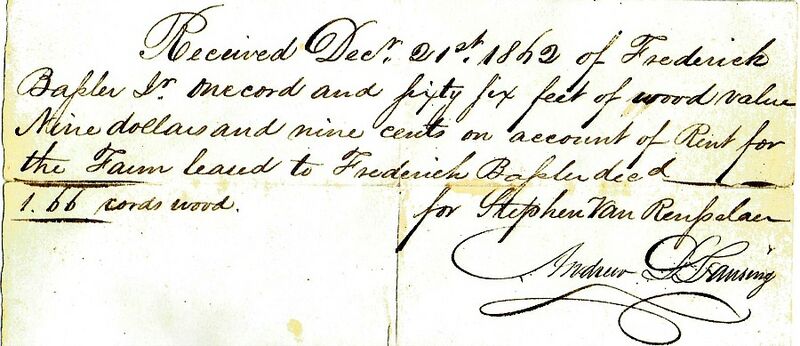 Received Decr. 21st. 1862 of Frederick
Baſsler Jr one cord and ſixty ſix feet of wood value
Nine dollars and nine cents on account of Rent for
the Farm leased to Frederick Baſsler decd
1.66 cords wood. for Stephen Van Renſselaer
Andrew D Lansing